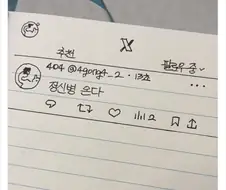 X
추천 팔로우 중
404 @4gong4_2 · 13초
정신병 온다
2